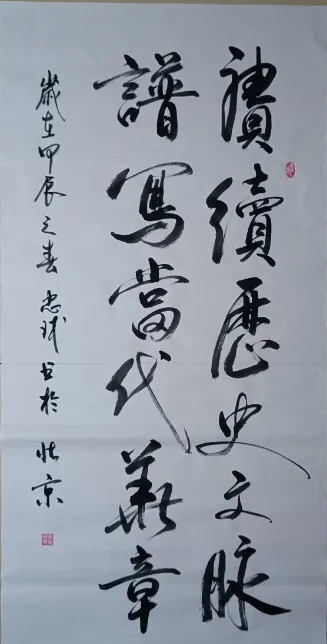 賡續歷史文脈
譜寫當代華章
歲在甲辰之春忠球書於北京